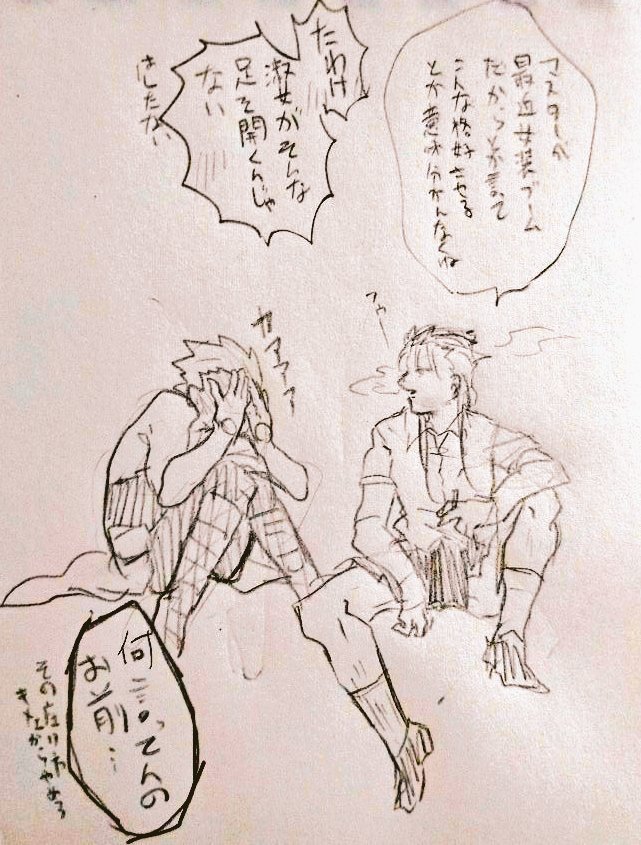 マスターが
最近女装ブーム
だからとか言って
こんな格好させる
とか意味分かんなくね
たわけ
淑女がそんな
足を開くんじゃ
ない
はしたない
フゥー
カアアアア
何言ってんの
お前…
その座り方
やめろ